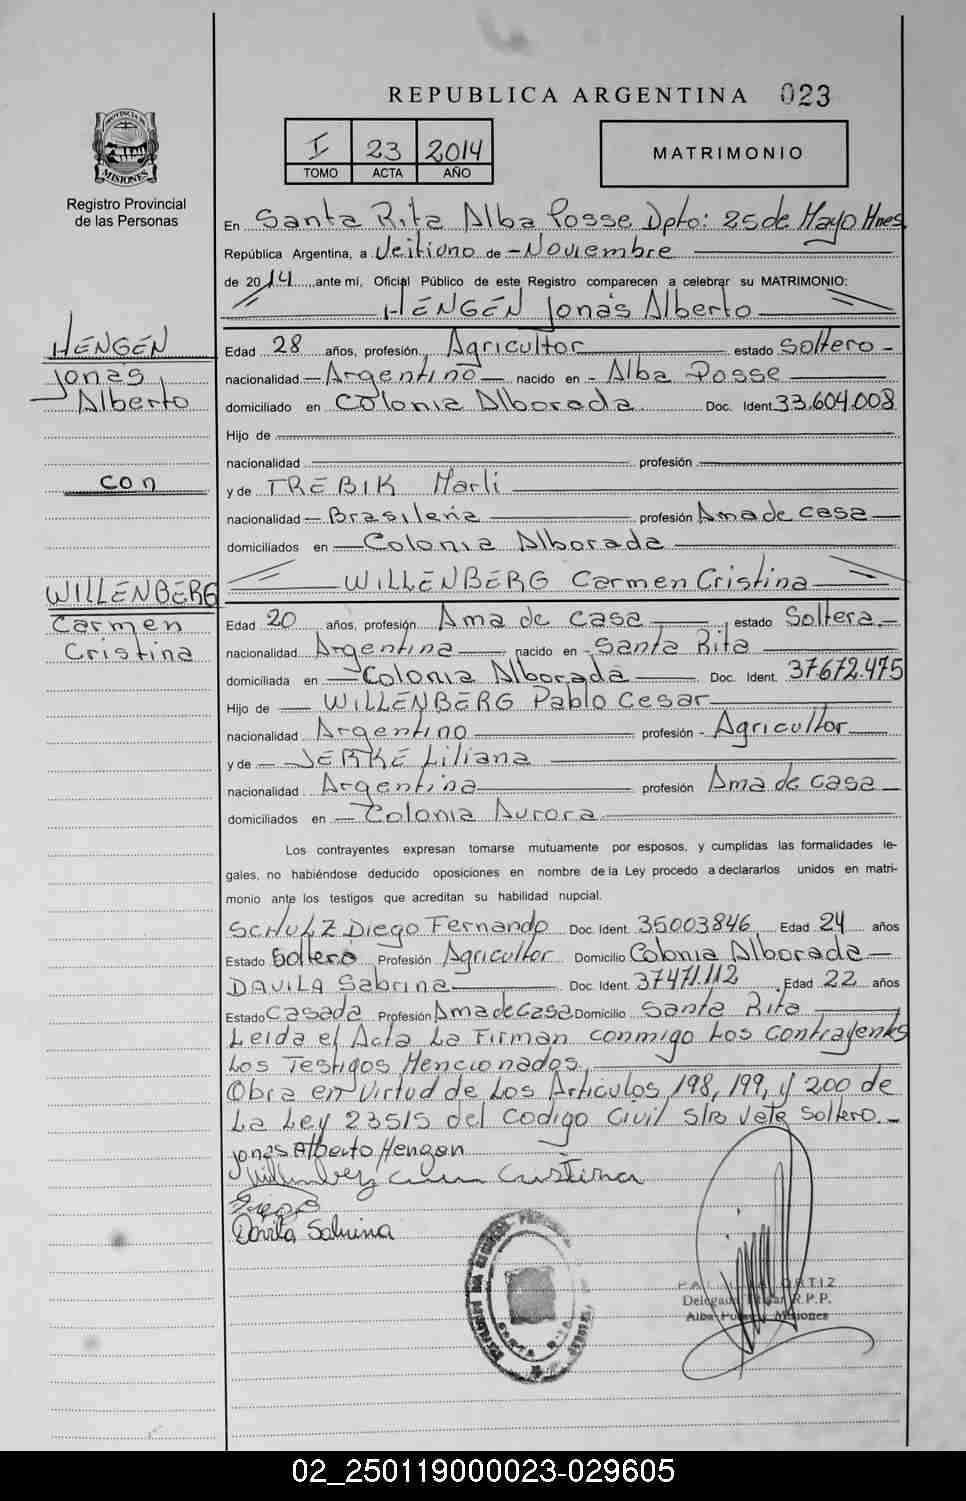 REPUBLICA ARGENTINA 023
PROVINCIA DE MISIONES
Registro Provincial
de las Personas
I 23 2014
TOMO ACTA AÑO
MATRIMONIO
En Santa Rita Alba Posse Dpto: 25 de Mayo Mnes
República Argentina, a Veitiuno de - Noviembre
de 2014 ante mí, Oficial Público de este Registro comparecen a celebrar su MATRIMONIO:
HENGEN Jonas Alberto
HENGEN
Jonas
Alberto
con
WILLENBERG
Carmen
Cristina
Edad 28 años, profesión Agricultor estado Soltero -
nacionalidad - Argentino - nacido en - Alba Posse
domiciliado en Colonia Alborada Doc. Ident. 33.604.008
Hijo de
nacionalidad profesión
y de TREBIK Marli
nacionalidad - Brasileña profesión Ama de casa
domiciliados en - Colonia Alborada
WILLENBERG Carmen Cristina
Edad 20 años, profesión Ama de casa estado Soltera.-
nacionalidad Argentina - nacido en - Santa Rita
domiciliada en - Colonia Alborada Doc. Ident. 37672.475
Hijo de - WILLENBERG Pablo Cesar
nacionalidad Argentino profesión - Agricultor
y de - JERKE Liliana
nacionalidad Argentina profesión Ama de casa -
domiciliados en - Colonia Aurora
Los contrayentes expresan tomarse mutuamente por esposos, y cumplidas las formalidades le-
gales, no habiéndose deducido oposiciones en nombre de la Ley procedo a declararlos unidos en matri-
monio ante los testigos que acreditan su habilidad nupcial.
SCHULZ Diego Fernando Doc. Ident. 35003846 Edad 24 años
Estado Soltero Profesión Agricultor Domicilio Colonia Alborada -
DAVILA Sabrina Doc. Ident. 37471.112 Edad 22 años
Estado Casada Profesión Ama de Casa Domicilio Santa Rita
Leida el Acta La Firman conmigo Los Contrayentes
Los Testigos Mencionados.
Obra en Virtud de Los Articulos 198, 199, y 200 de
La Ley 23515 del Codigo Civil S/R Vale Soltero.-
Jonas Alberto Hengen
Willenberg Cristina
Diego S
Davila Sabrina
ORTIZ
Delegada Titular R.P.P.
Alba Posse - Misiones
SANTA RITA
02_250119000023-029605